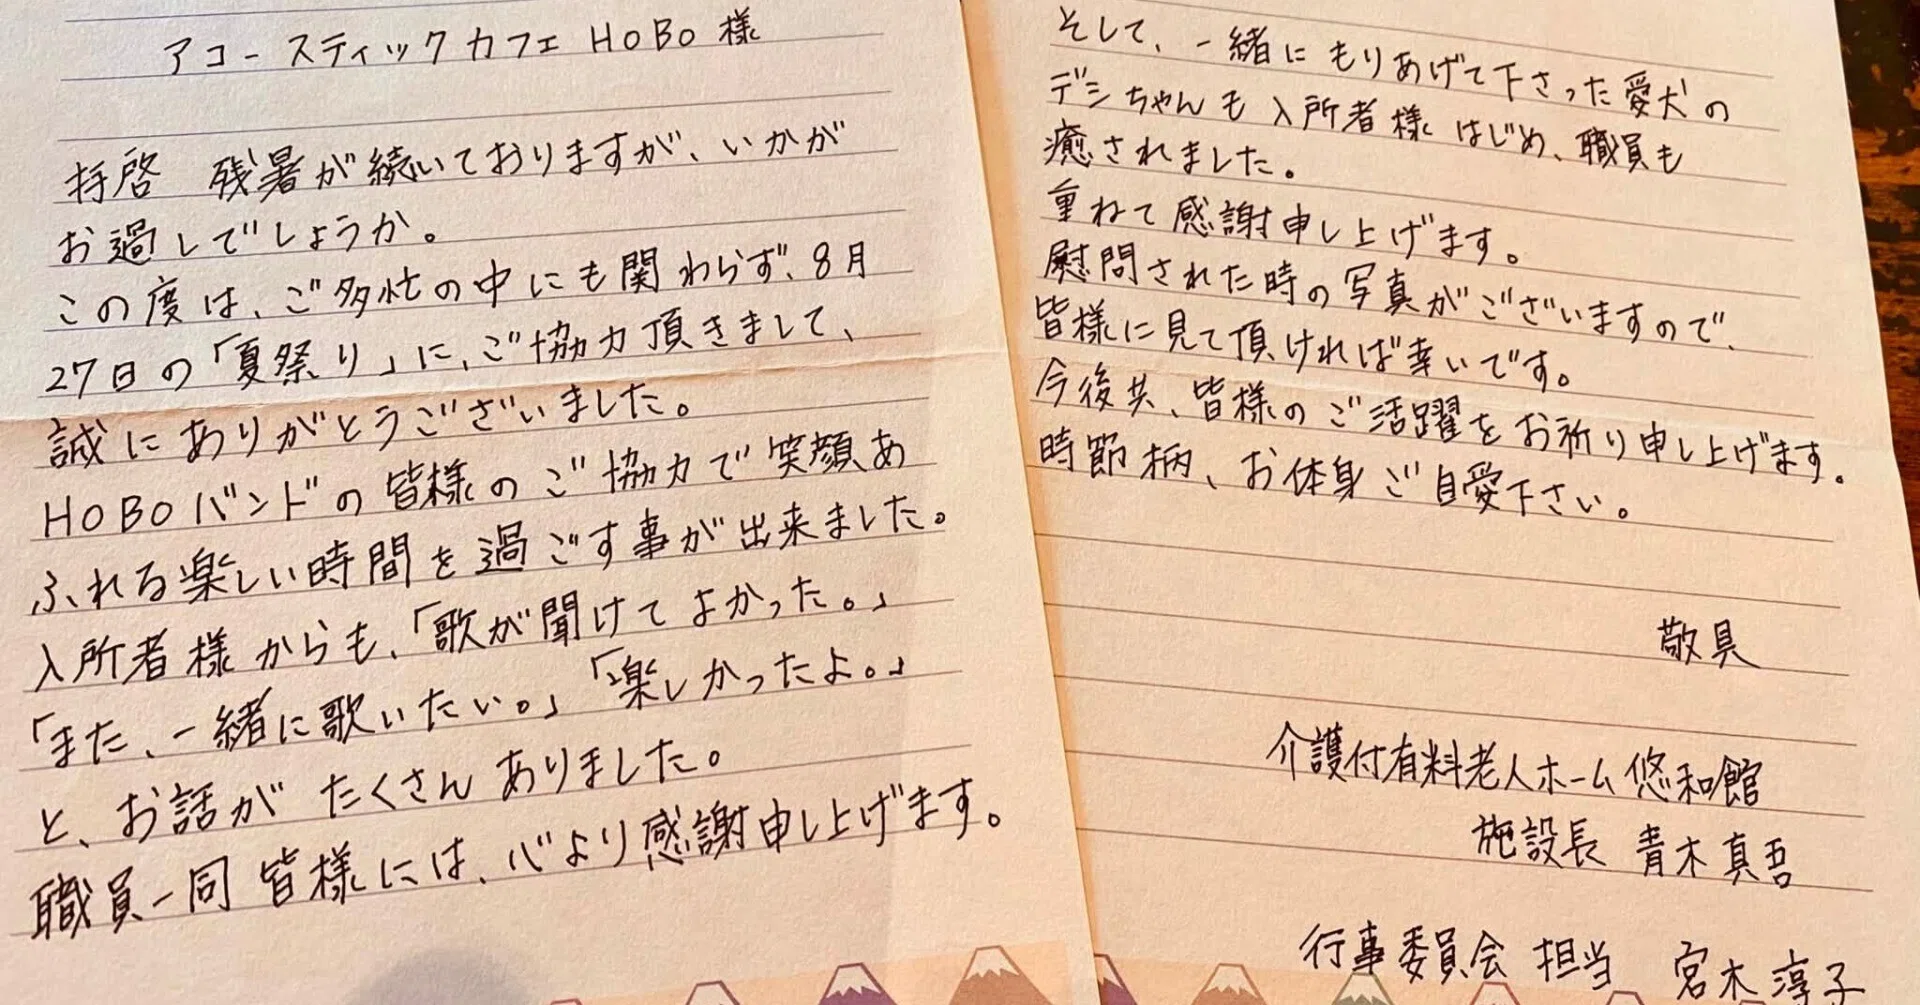 アコースティックカフェ HoBo 様
拝啓 残暑が続いておりますが、いかが
お過しでしょうか。
この度は、ご多忙の中にも関わらず、8月
27日の「夏祭り」に、ご協力頂きまして、
誠にありがとうございました。
HoBoバンドの皆様のご協力で笑顔あ
ふれる楽しい時間を過ごす事が出来ました。
入所者様からも、「歌が聞けてよかった。」
「また、一緒に歌いたい。」「楽しかったよ。」
と、お話がたくさんありました。
職員一同皆様には、心より感謝申し上げます。
そして、一緒にもりあげて下さった愛犬の
デシちゃんも入所者様はじめ、職員も
癒されました。
重ねて感謝申し上げます。
慰問された時の写真がございますので、
皆様に見て頂ければ幸いです。
今後共、皆様のご活躍をお祈り申し上げます。
時節柄、お体身ご自愛下さい。
敬具
介護付有料老人ホーム悠和館
施設長 青木真吾
行事委員会 担当 宮木淳子